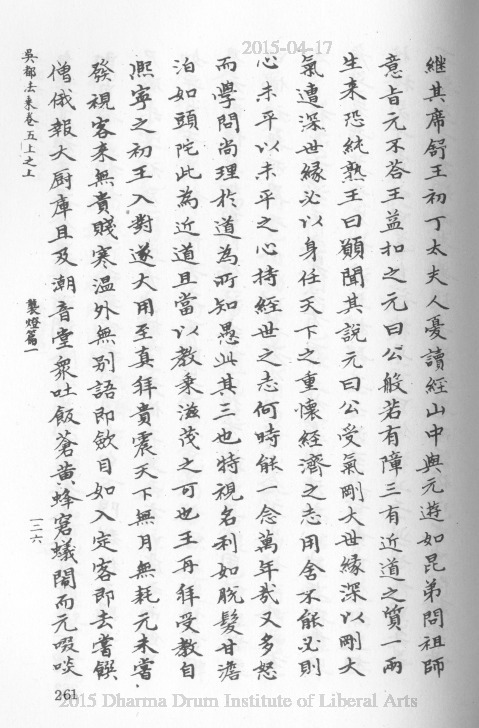 2015-04-17
繼其席舒王初丁太夫人憂讀經山中與元遊如昆弟問祖師
意旨元不答王益扣之元曰公般若有障三有近道之質一兩
生來恐純熟王曰願聞其說元曰公受氣剛大世緣深以剛大
氣遭深世緣必以身任天下之重懷經濟之志用舍不能必則
心未平以未平之心持經世之志何時能一念萬年哉又多怒
而學問尚理於道為所知愚此其三也特視名利如脫髮甘澹
泊如頭陀此為近道且當以教乘滋茂之可也王再拜受教自
熈寧之初王入對遂大用至真拜貴震天下無月無耗元未嘗
發視客來無貴賤寒溫外無別語即歛目如入定客即去嘗饌
僧俄報大厨庫且及潮音堂衆吐飯蒼黃蜂窘蟻鬧而元啜啖
吳都法乘卷五上之上
襲燈篇一
一二六
261
2015 Dharma Drum Institute of Liberal Arts